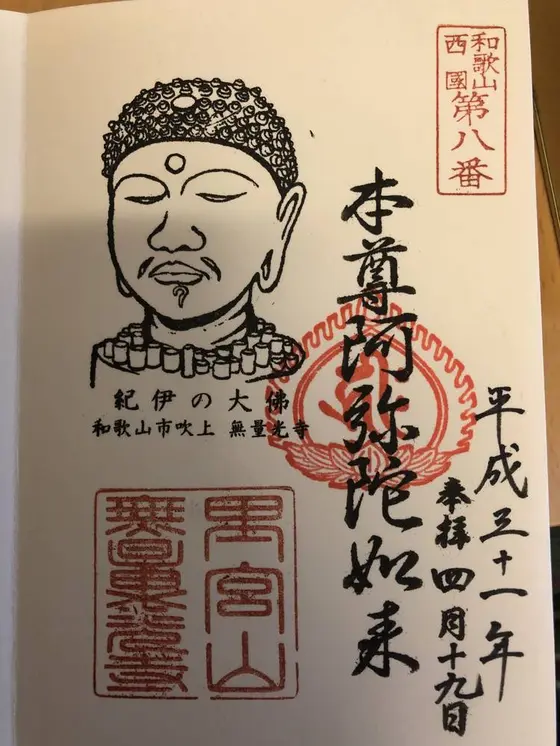 和歌山
西國
第八番
平成三十一年
奉拝 四月十九日
本尊阿弥陀如来
紀伊の大佛
和歌山市吹上 無量光寺
里宮山
無量光寺